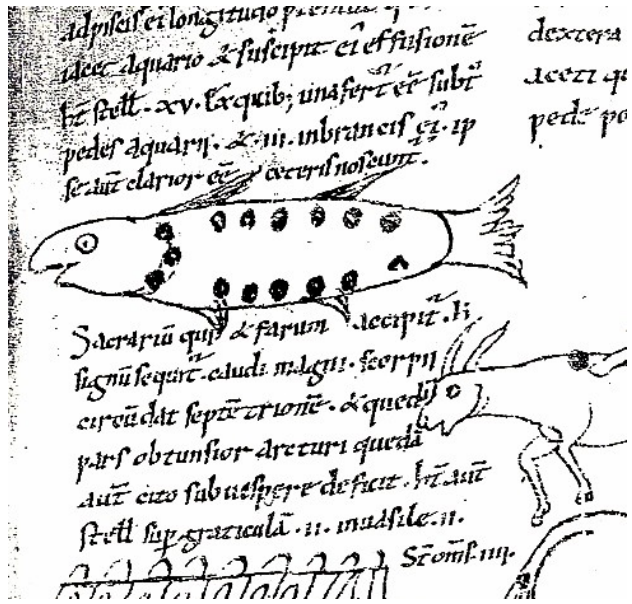 adpiscis et longitudo
iacet aquario & suscipit ei effusionē
hт̄ stell. xv. Ex quib; una fert̄ eē subt̄
pedes aquarii. & .iii. in brancis ei. ip
se aūt clarior eē ceteris noscunt̄.
Sacrariū & farum accipit̄. h
signū sequit̄. caudā magni scorpii
circūdat septētrionē. & quedā
pars obtunsior arcturi quedā
aūt cito sub uespere deficit. hт̄ aūt
stell sup̄ graticulā .ii. in uasile .ii.
St̄ om̄s .iiii.
dextera
aceti
pede